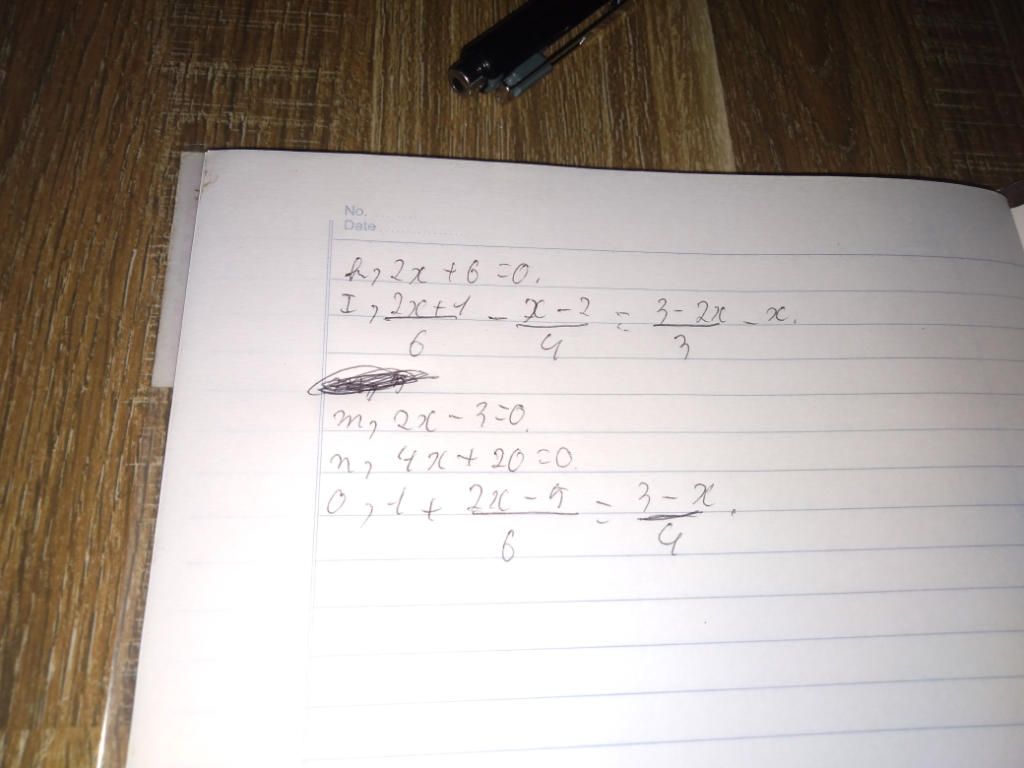 No. ............
Date .................
k, 2x + 6 = 0.
I, (2x+1)/6 - (x-2)/4 = (3-2x)/3 - x.
m, 2x - 3 = 0.
n, 4x + 20 = 0.
O, 1 + (2x-5)/6 = (3-x)/4.